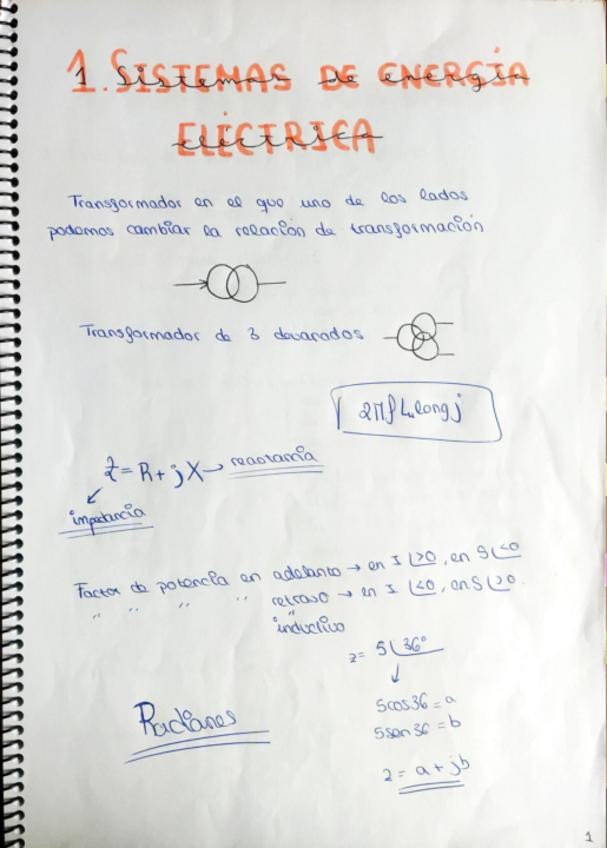 1. SISTEMAS DE ENERGÍA
ELÉCTRICA
Transformador en el que uno de los lados
podemos cambiar la relación de transformación
Transformador de 3 devanados
2πf Lu long j
Z = R + jX → reactancia
impedancia
Factor de potencia en adelanto → en I ∠>0, en S ∠<0
" " " " retraso → en I ∠<0, en S ∠>0.
"
inductivo
z = 5∠36°
5cos36 = a
5sen36 = b
z = a + jb
Radianes
1